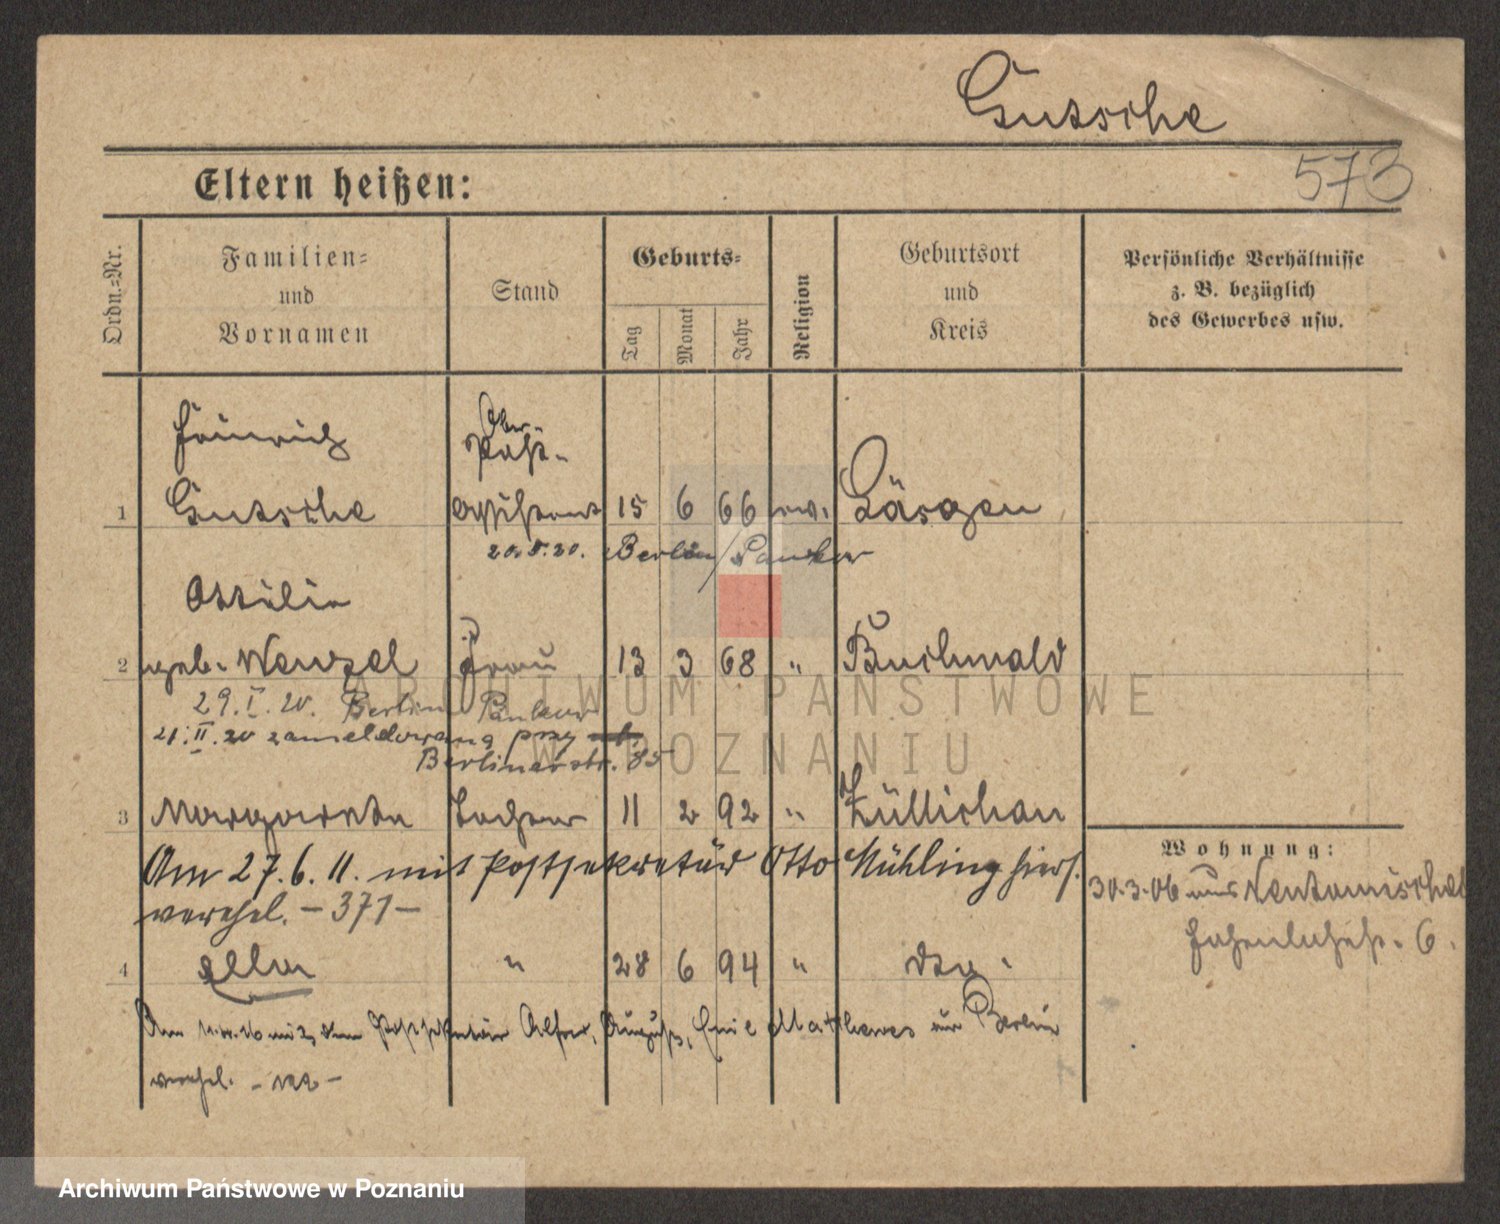 Gutsche
573
Eltern heißen:
Ordn.-Nr.
Familien-
und
Vornamen
Stand
Geburts-
Tag
Monat
Jahr
Religion
Geburtsort
und
Kreis
Persönliche Verhältnisse
z. B. bezüglich
des Gewerbes usw.
Heinrich Ober-
Post-
1 Gutsche assistent 15 6 66 ev. Läsgen
20.8.20. Berlin/Pankow
Ottilie
2 geb. Wenzel Frau 13 3 68 " Buchwald
29.I.20. Berlin Pankow
21.II.20 zameldowana przy
Berlinerstr. 85
3 Margarete Tochter 11 2 92 " Züllichau
Am 27.6.11. mit Postsekretär Otto Mühling hiers.
verehel. - 371 -
4 Ella " 28 6 94 " dto.
Am mit dem Postsekretär Alfred, August, Emil Matthewes aus Berlin
verehel.
Wohnung:
30.3.06 aus Neutomischel
6.
ARCHIWUM PAŃSTWOWE
W POZNANIU
Archiwum Państwowe w Poznaniu